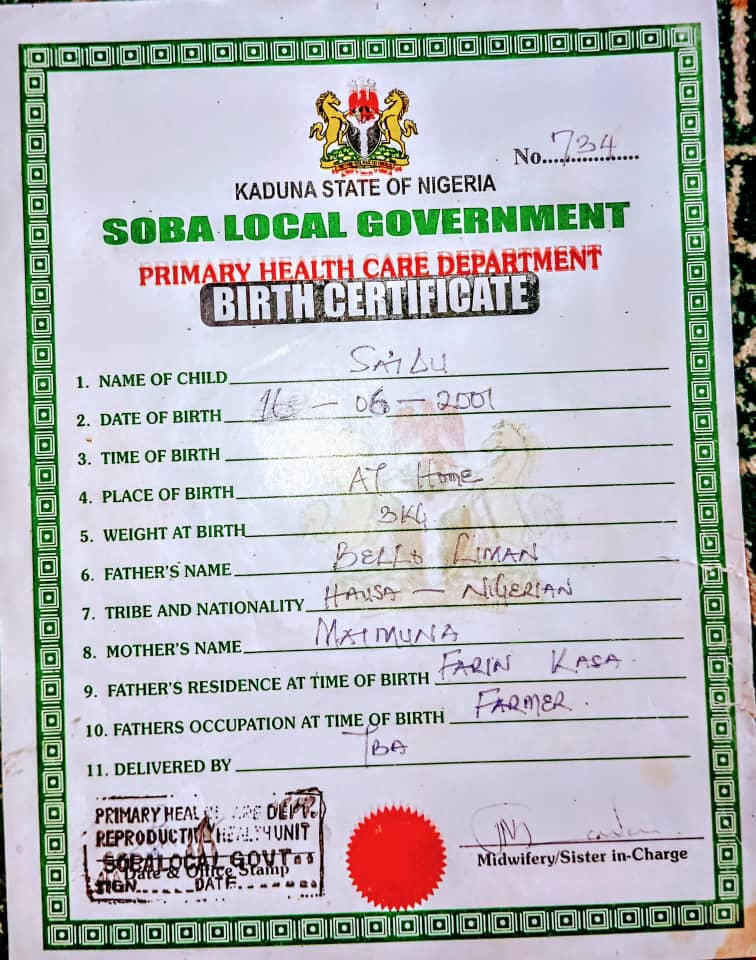 No. 734
KADUNA STATE OF NIGERIA
SOBA LOCAL GOVERNMENT
PRIMARY HEALTH CARE DEPARTMENT
BIRTH CERTIFICATE
1. NAME OF CHILD SAIDU
2. DATE OF BIRTH 16 - 06 - 2001
3. TIME OF BIRTH
4. PLACE OF BIRTH AT HOME
5. WEIGHT AT BIRTH 3KG
6. FATHER'S NAME BELLO LIMAN
7. TRIBE AND NATIONALITY HAUSA - NIGERIAN
8. MOTHER'S NAME MAIMUNA
9. FATHER'S RESIDENCE AT TIME OF BIRTH FARIN KASA
10. FATHERS OCCUPATION AT TIME OF BIRTH FARMER.
11. DELIVERED BY TBA
PRIMARY HEALTH CARE DEPT.
REPRODUCTIVE HEALTH UNIT
SOBA LOCAL GOVT.
Date & Office Stamp
SIGN......DATE......
Midwifery/Sister in-Charge